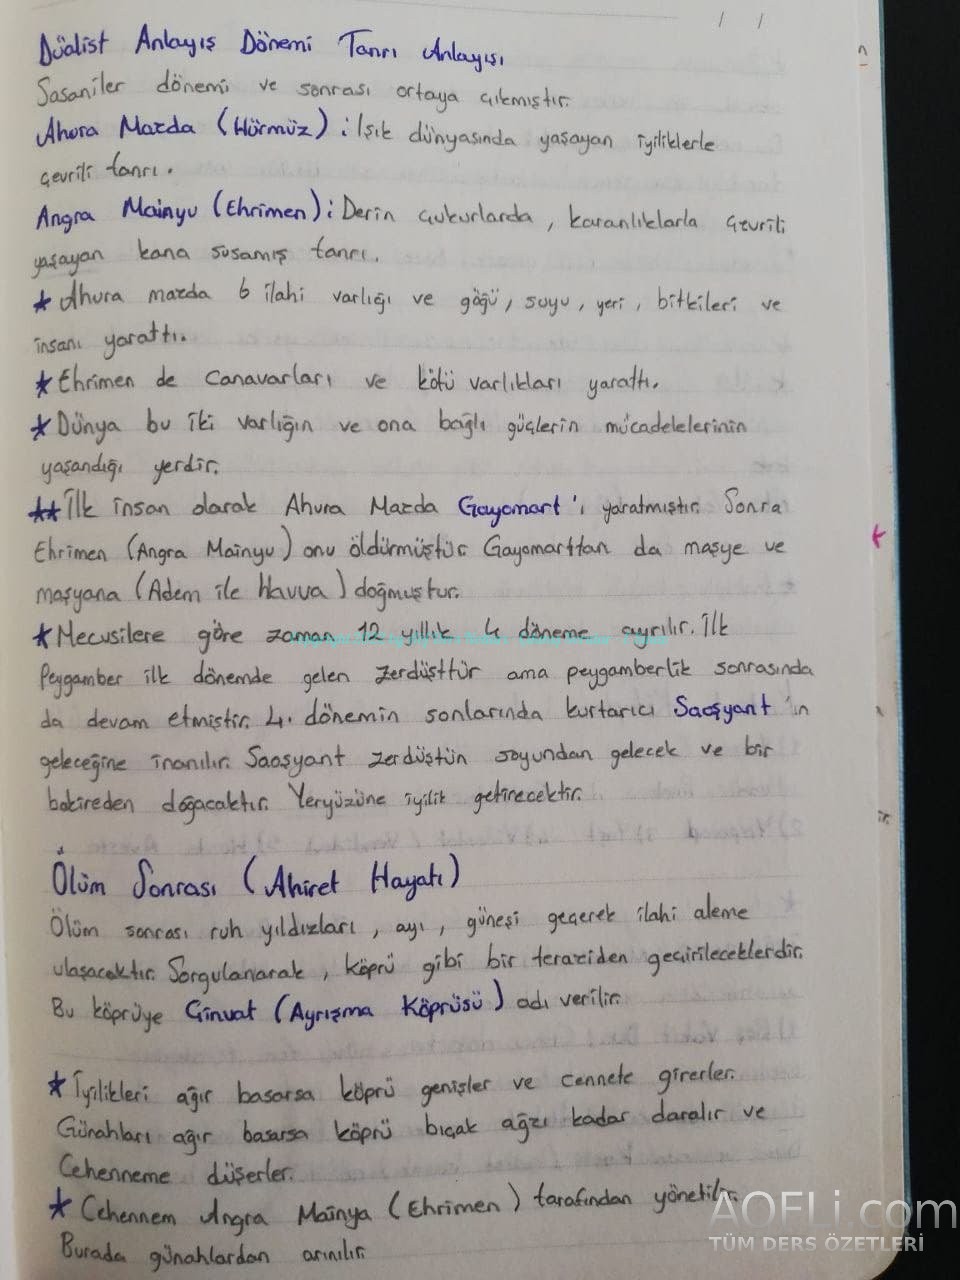 Düalist Anlayış Dönemi Tanrı Anlayışı
Sasaniler dönemi ve sonrası ortaya çıkmıştır.
Ahura Mazda (Hürmüz) : Işık dünyasında yaşayan iyiliklerle
çevrili tanrı.
Angra Mainyu (Ehrimen) : Derin çukurlarda, karanlıklarla çevrili
yaşayan kana susamış tanrı.
★ Ahura mazda 6 ilahi varlığı ve göğü, suyu, yeri, bitkileri ve
insanı yarattı.
★ Ehrimen de canavarları ve kötü varlıkları yarattı.
★ Dünya bu iki varlığın ve ona bağlı güçlerin mücadelelerinin
yaşandığı yerdir.
★★ İlk insan olarak Ahura Mazda Gayomart'ı yaratmıştır. Sonra
Ehrimen (Angra Mainyu) onu öldürmüştür. Gayomarttan da maşye ve
maşyana (Adem ile Havva) doğmuştur.
★ Mecusilere göre zaman 12 yıllık 4 döneme ayrılır. İlk
Peygamber ilk dönemde gelen zerdüşttür ama peygamberlik sonrasında
da devam etmiştir. 4. dönemin sonlarında kurtarıcı Saoşyant'ın
geleceğine inanılır. Saoşyant zerdüştün soyundan gelecek ve bir
bakireden doğacaktır. Yeryüzüne iyilik getirecektir.
Ölüm Sonrası (Ahiret Hayatı)
Ölüm sonrası ruh yıldızları, ayı, güneşi geçerek ilahi aleme
ulaşacaktır. Sorgulanarak, köprü gibi bir teraziden geçirileceklerdir.
Bu köprüye Çinvat (Ayrışma Köprüsü) adı verilir.
★ İyilikleri ağır basarsa köprü genişler ve cennete girerler.
Günahları ağır basarsa köprü bıçak ağzı kadar daralır ve
Cehenneme düşerler.
★ Cehennem Angra Mainya (Ehrimen) tarafından yönetilir.
Burada günahlardan arınılır.
AOFLi.com
TÜM DERS ÖZETLERİ